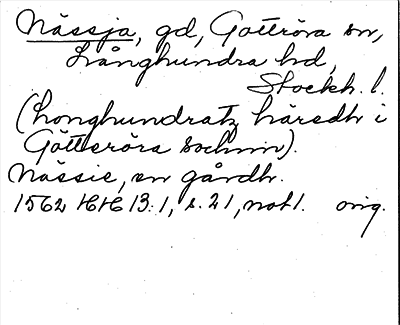 Nässja, gd, Gottröra sn,
Långhundra hd,
Stockh. l.
(Longhundratz häredh i
Götteröra sochnn).
Nässie, en gårdh.
1562 HH 13:1, s. 21, not 1. orig.